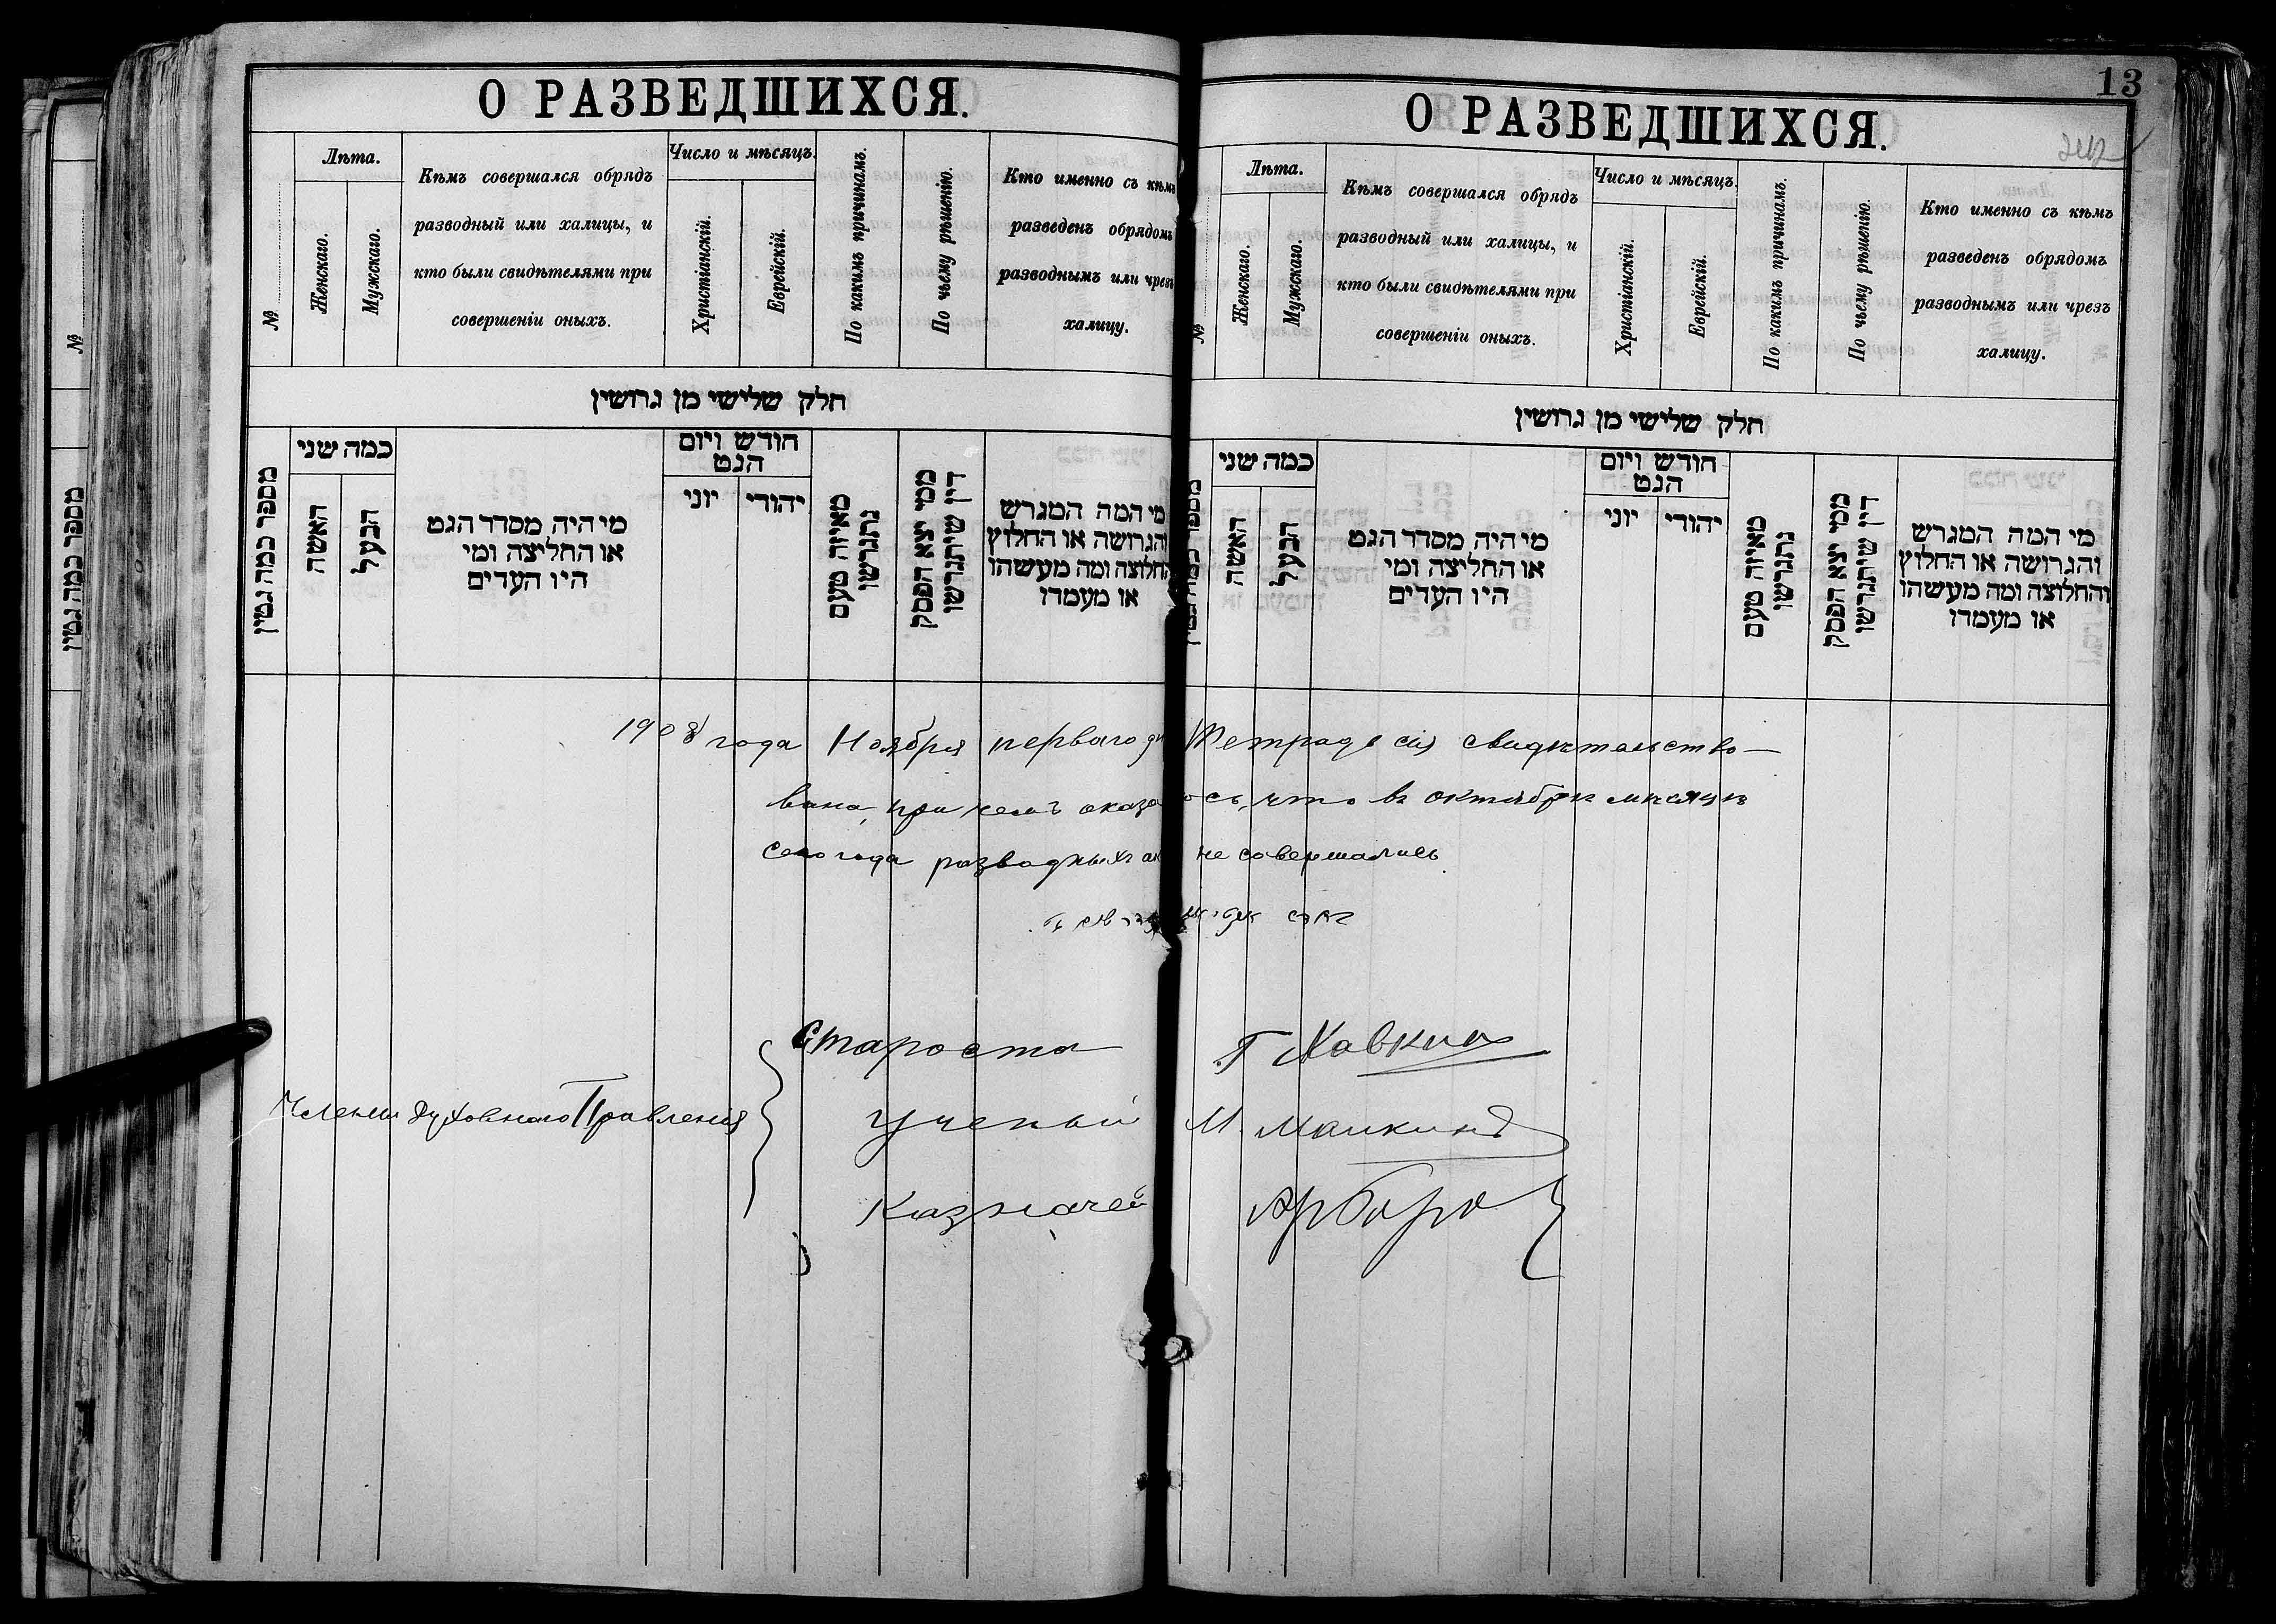 О РАЗВЕДШИХСЯ.
№
Лѣта.
Женскаго.
Мужскаго.
Кѣмъ совершался обрядъ
разводный или халицы, и
кто были свидѣтелями при
совершеніи оныхъ.
Число и мѣсяцъ.
Христіанскій.
Еврейскій.
По какимъ причинамъ.
По чьему рѣшенію.
Кто именно съ кѣмъ
разведенъ обрядомъ
разводнымъ или чрезъ
халицу.
חלק שלישי מן גרושין
מספר כמה גטין
כמה שני
האשה
הבעל
מי היה מסדר הגט
או החליצה ומי
היו העדים
חודש ויום
הגט
יוני
יהודי
מאיזה טעם
נתגרשו
ממי יצא הפסק
דין שיתגרשו
מי המה המגרש
והגרושה או החלוץ
והחלוצה ומה מעשהו
או מעמדו
13
О РАЗВЕДШИХСЯ.
№
Лѣта.
Женскаго.
Мужскаго.
Кѣмъ совершался обрядъ
разводный или халицы, и
кто были свидѣтелями при
совершеніи оныхъ.
Число и мѣсяцъ.
Христіанскій.
Еврейскій.
По какимъ причинамъ.
По чьему рѣшенію.
Кто именно съ кѣмъ
разведенъ обрядомъ
разводнымъ или чрезъ
халицу.
חלק שלישי מן גרושין
מספר כמה גטין
כמה שני
האשה
הבעל
מי היה מסדר הגט
או החליצה ומי
היו העדים
חודש ויום
הגט
יוני
יהודי
מאיזה טעם
נתגרשו
ממי יצא הפסק
דין שיתגרשו
מי המה המגרש
והגרושה או החלוץ
והחלוצה ומה מעשהו
או מעמדו
№
מספר כמה גטין
1908 года Ноября перваго дн Тетрадь сія свидѣтельство-
вана, при чемъ оказалось, что въ октябрѣ мѣсяцѣ
сего года разводныхъ ак не совершались
Староста Г Хавкинъ
Члены Духовнаго Правленія
Ученый М. Малкинъ
Казначей